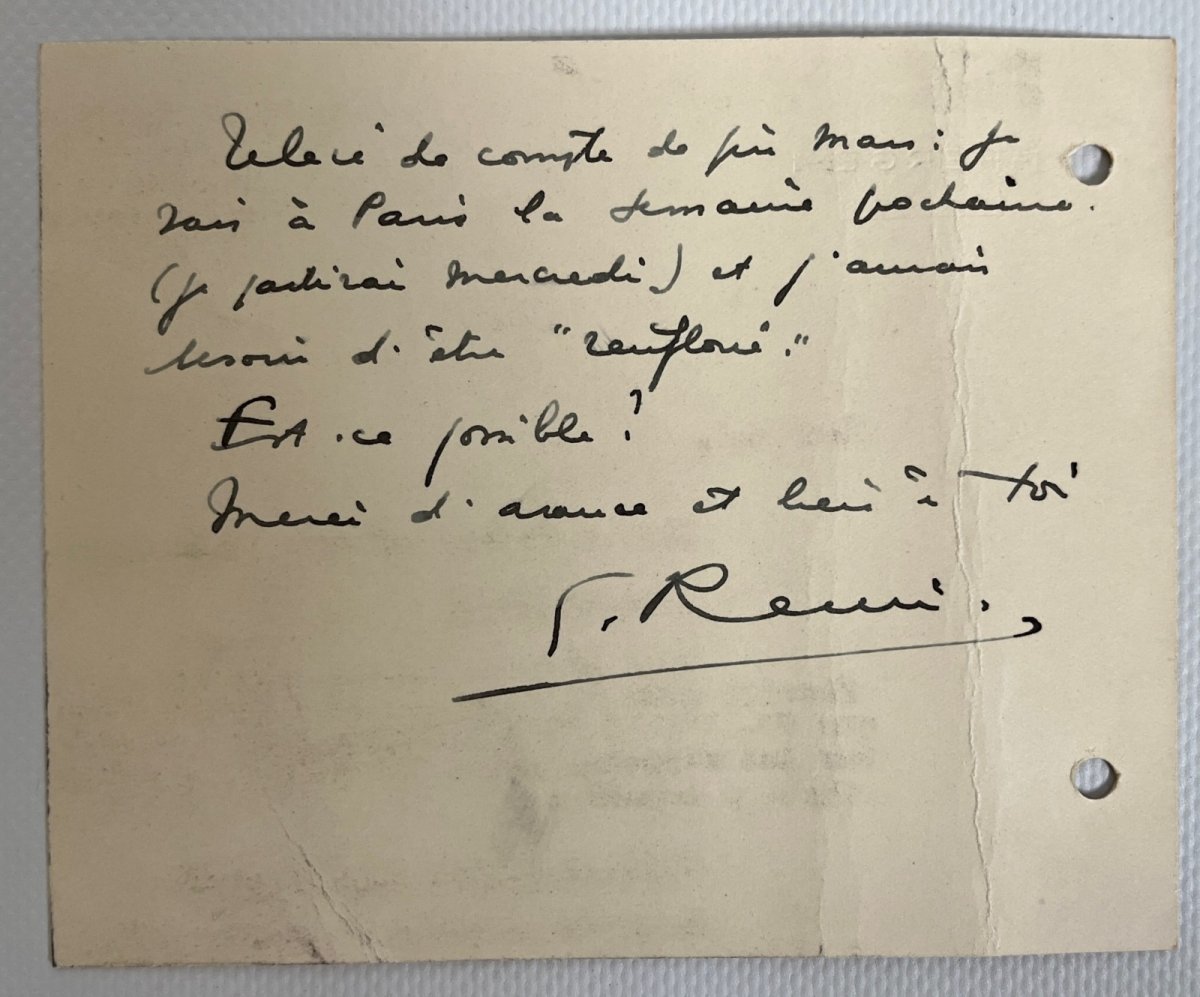 Relevé de compte de fin Mars : je
vais à Paris la semaine prochaine.
(je partirai mercredi) et j'aurais
besoin d'être "renfloué."
Est-ce possible ?
Merci d'avance et bien à toi
G. Remi.